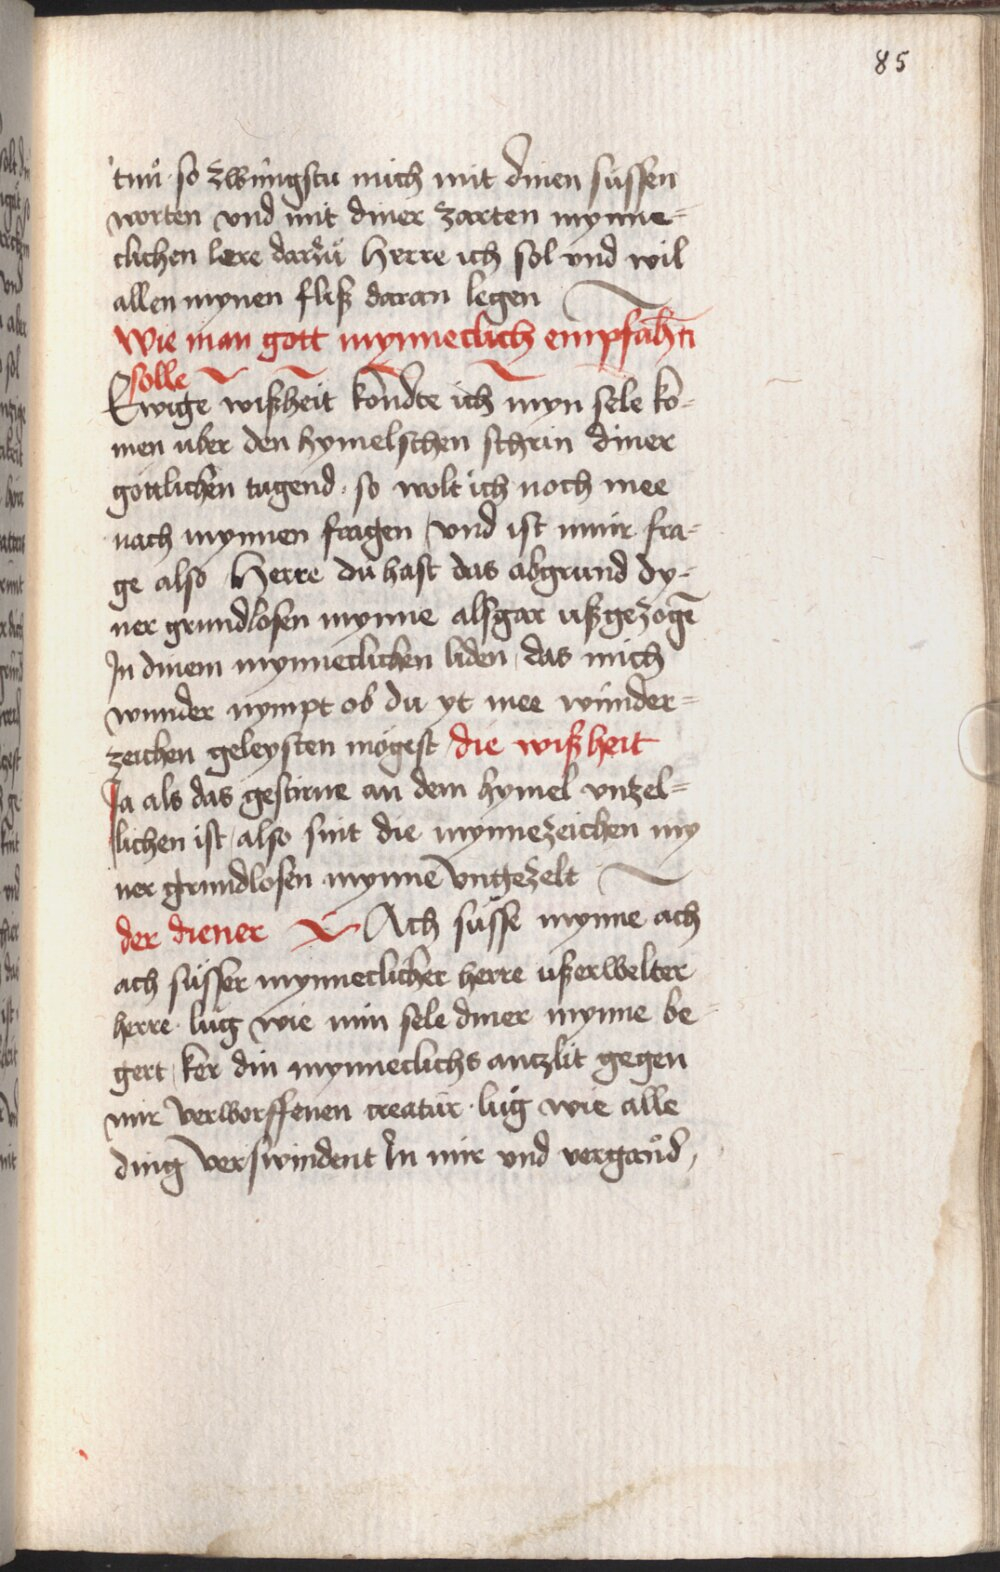 85
tuͦn · so zwingstu mich mit dinen süssen
worten vnd mit diner zarten mynne=
clichen lere darzuͦ Herre ich sol vnd wil
allen mynen fliß daran legen
Wie man gott mynneclich empfāhn
solle
Ewige wißheit kondte ich myn sele ko-
men uber den hymelschen schrin diner
gottlichen tugend · so wolt ich noch mee
nach mynnen fragen / vnd ist min fra-
ge also Herre du hast das abgrund dy-
ner grundlosen mynne alsgar ußgezogē
In dinem mynneclichen liden / das mich
wunder nympt ob du yt mee wunder=
zeichen geleysten mogest die wißheit
Ja als das gestirne an dem hymel vntzel=
lichen ist / also sint die mynnezeichen my
ner grundlosen mynne vngezelt
der diener Ach süsse mynne ach
ach süsser mynneclicher herre ußerwelter
herre · lug wie min sele diner mynne be-
gert / ker din mynneclichs antzlit gegen
mir verworffenen creatur · lug wie alle
ding verswindent In mir vnd vergond /